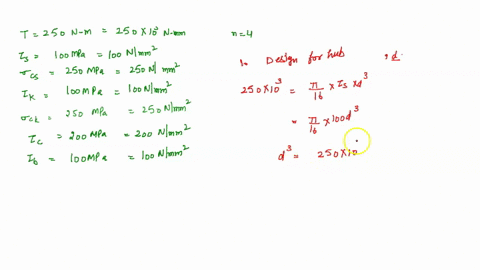 T = 250 N-m = 250 × 10³ N-mm
τs = 100 MPa = 100 N/mm²
σcs = 250 MPa = 250 N/mm²
τk = 100 MPa = 100 N/mm²
σck = 250 MPa = 250 N/mm²
τc = 200 MPa = 200 N/mm²
τb = 100 MPa = 100 N/mm²
n = 4
1. Design for hub , d
250 × 10³ = π/16 × τs × d³
= π/16 × 100 d³
d³ = 250 × 10